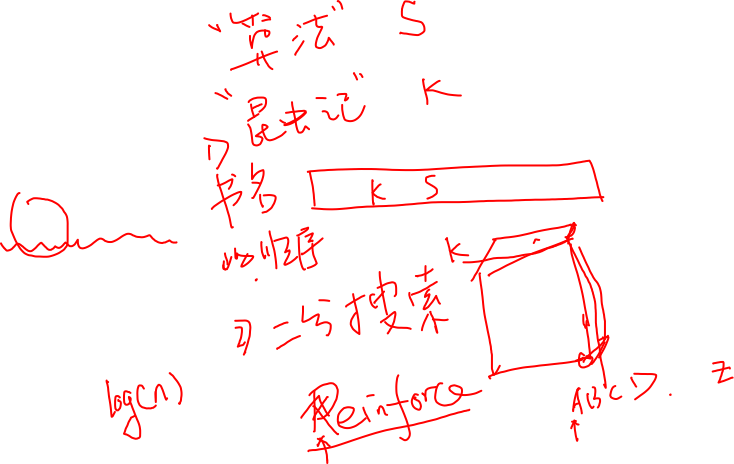 "算法" S
"昆虫记" K
1)
书名 K S
顺序 K
2) 二分搜索
log(n)
Reinforce
A B C D. Z